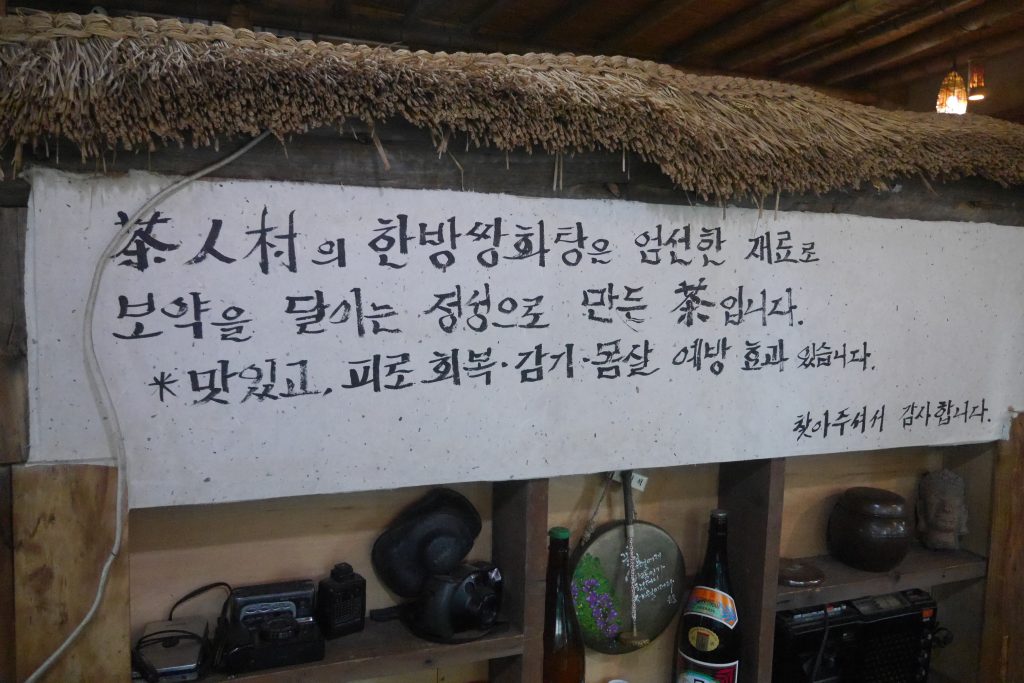 茶人村의 한방쌍화탕은 엄선한 재료로
보약을 달이는 정성으로 만든 茶입니다.
*맛있고, 피로회복·감기·몸살 예방 효과 있습니다.
찾아주셔서 감사합니다.